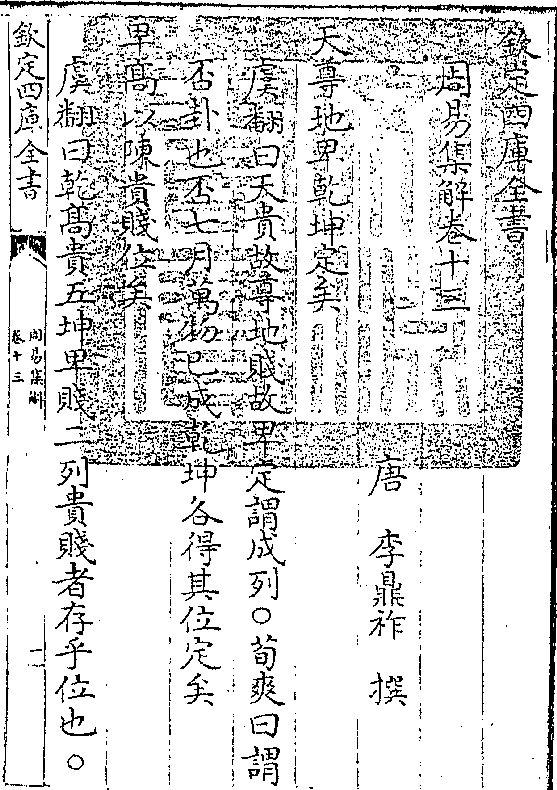 欽定四庫全書
周易集解卷十三
唐 李鼎祚 撰
天尊地卑乾坤定矣
虞翻曰天貴故尊地賤故卑定謂成列○荀爽曰謂
否卦也否七月萬物已成乾坤各得其位定矣
卑髙以陳貴賤位矣
虞翻曰乾髙貴五坤卑賤二列貴賤者存乎位也○
欽定四庫全書
周易集解
卷十三